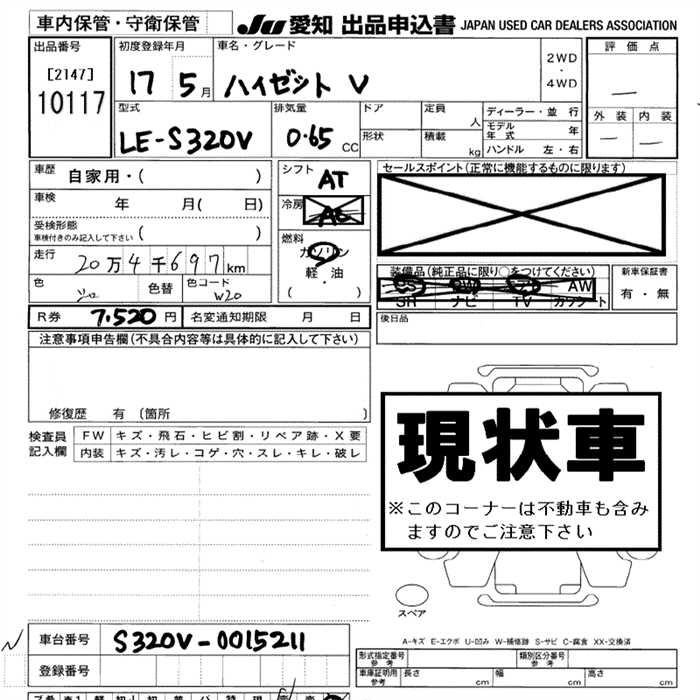 車内保管・守衛保管
JU 愛知 出品申込書 JAPAN USED CAR DEALERS ASSOCIATION
出品番号
[2147]
10117
初度登録年月
17 5月
車名・グレード
ハイゼット V
2WD
・
4WD
評価点
―
外装 内装
― ―
型式
LE-S320V
排気量
0.65 CC
ドア
形状
定員
人
積載
kg
ディーラー・並行
モデル年式 年
ハンドル 左・右
車歴 自家用・( )
車検 年 月( 日)
受検形態
車検付きのみ記入して下さい ( )
走行 20万4千697km
色 シロ 色替 色コード W20
シフト AT
冷房 AC
燃料
ガソリン
軽・油
( )
セールスポイント(正常に機能するものに限ります)
装備品(純正品に限り○をつけてください)
CS PW エアB AW
SR ナビ TV カワシート
新車保証書
有・無
R券 7.520円 名変通知期限 月 日
後日品
注意事項申告欄(不具合内容等は具体的に記入して下さい)
修復歴 有 (箇所 )
検査員記入欄
FW キズ・飛石・ヒビ割・リペア跡・X要
内装 キズ・汚レ・コゲ・穴・スレ・キレ・破レ
現状車
※このコーナーは不動車も含み
ますのでご注意下さい
スペア
A-キズ E-エクボ U-凹み W-補修跡 S-サビ C-腐食 XX-交換済
N
車台番号 S320V-0015211
登録番号
形式指定番号 参考
類別区分番号 参考
車庫証明用 参考 長さ cm 幅 cm 高さ cm